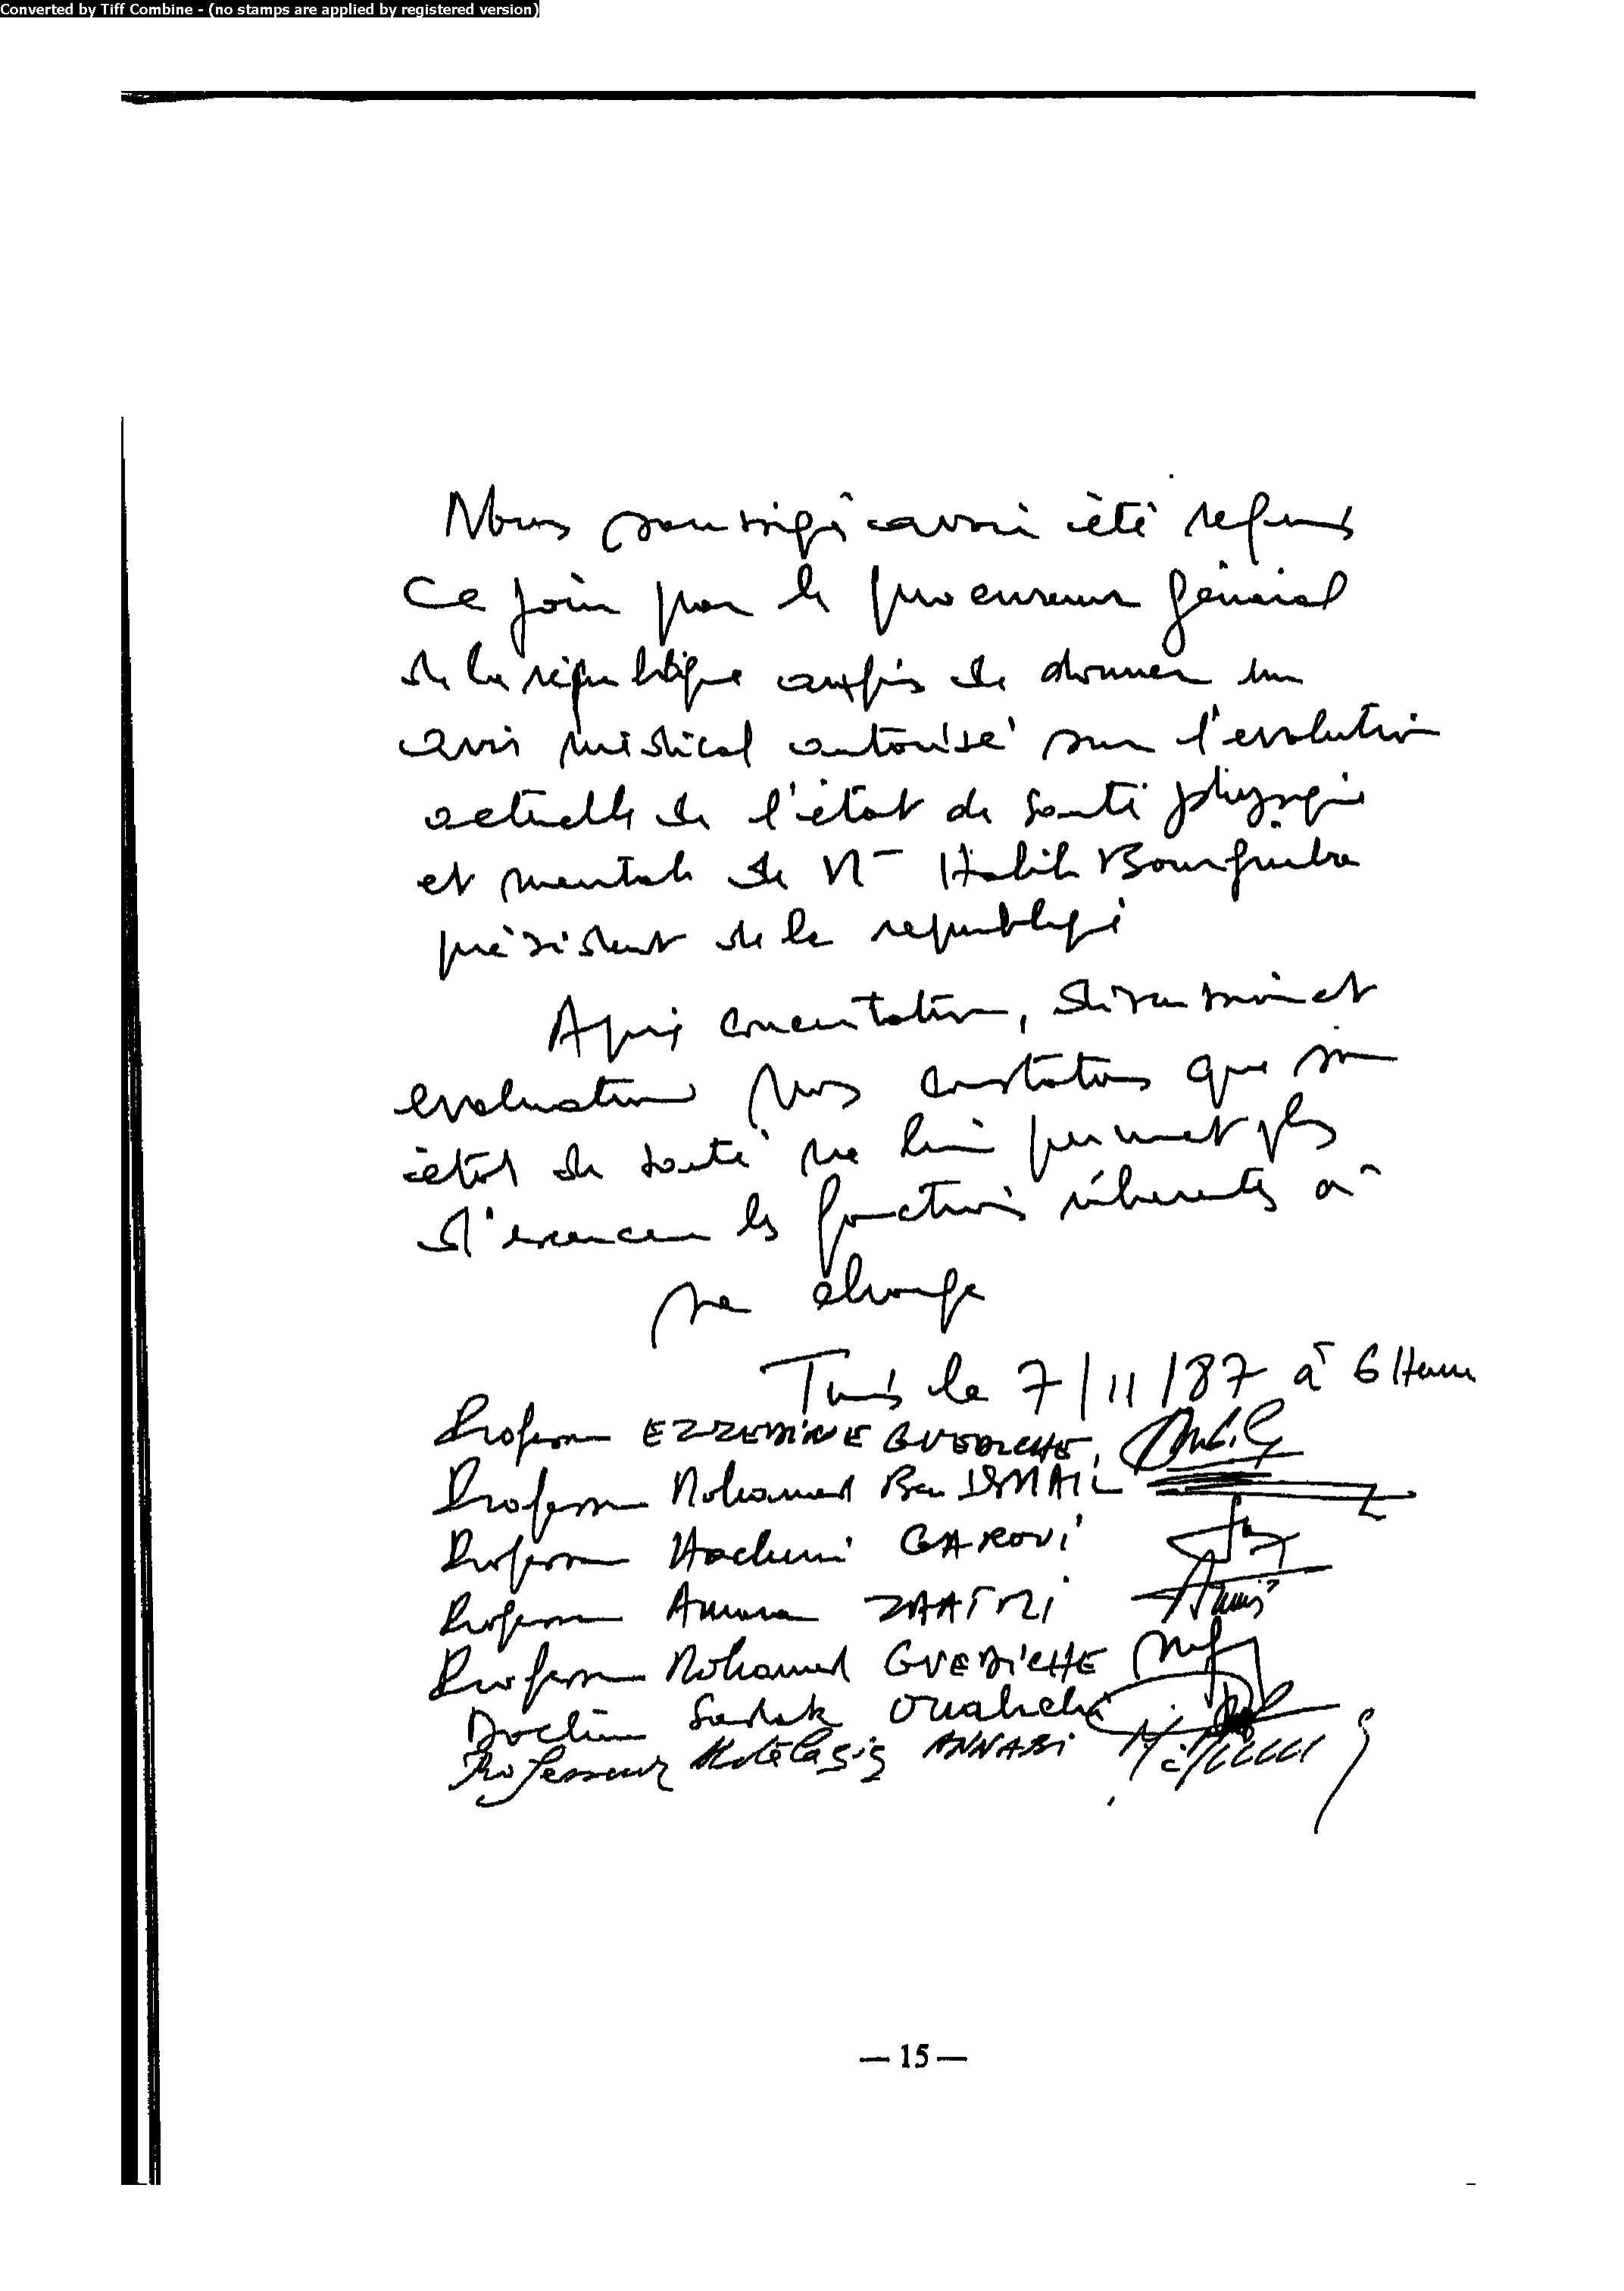 Converted by Tiff Combine - (no stamps are applied by registered version)
Nous soussignés avoir été requis
ce jour par le procureur général
de la république aux fins de donner un
avis médical autorisé sur l'evolution
actuelle de l'état de santé physique
et mentale de Mr Habib Bourguiba
président de la republique
Après concertation, discussion et
evaluation nous constatons que son
état de santé ne lui permet plus
d'exercer les fonctions inhérentes à
sa charge
Tunis le 7/11/87 à 6 Heures
Professeur EZZEDINE GUEDICHE
Professeur Mohamed Ben ISMAIL
Professeur Hachemi GAROUI
Professeur Amara ZAATRI
Professeur Mohamed GUEDICHE
Docteur Sadok Ouahchi
Professeur ANNABI
— 15 —